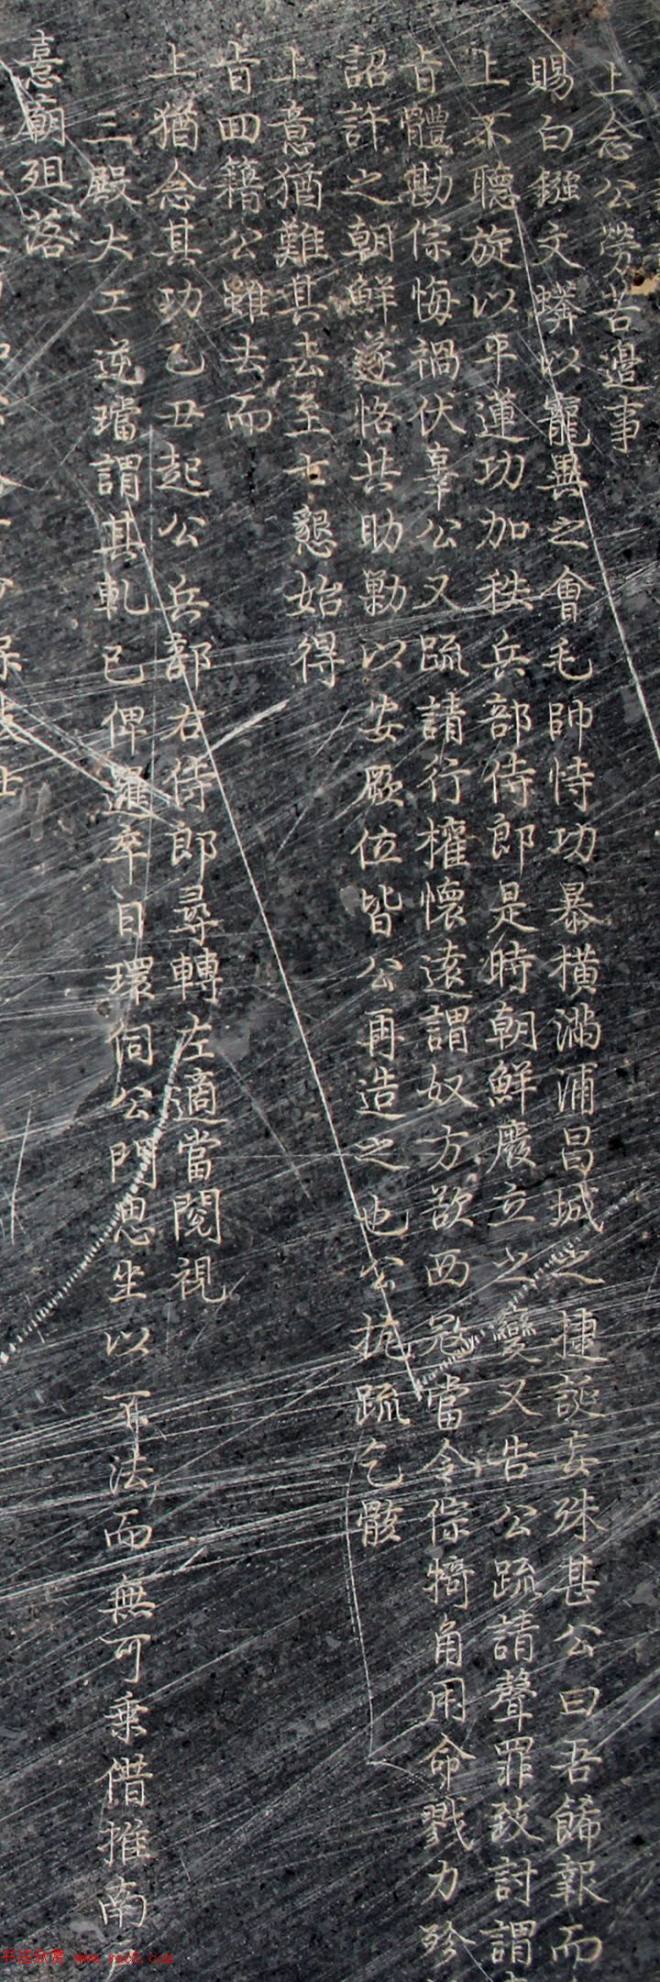 上念公勞苦邊事
賜白鏹文蟒以寵異之會毛帥恃功暴橫滿浦昌城之捷誕妄殊甚公曰吾餙報而
上不聽旋以平蓮功加秩兵部侍郎是時朝鮮廢立之變又告公疏請聲罪致討謂
旨體勘倧悔禍伏辜公又疏請行權懷遠謂奴方欲西寇當令倧犄角用命戮力殄
詔許之朝鮮遂恪共助勦以安厥位皆公再造之也公抗疏乞骸
上意猶難其去至七懇始得
旨回籍公雖去而
上猶念其功乙丑起公兵部右侍郎尋轉左適當閱視
三殿大工逆璫謂其軋已俾邏卒目環伺公門思坐以不法而無可乘借推南
憙廟殂落